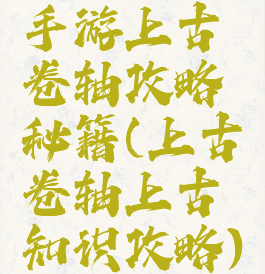 手游上古
卷轴攻略
秘籍(上古
卷轴上古
知识攻略)